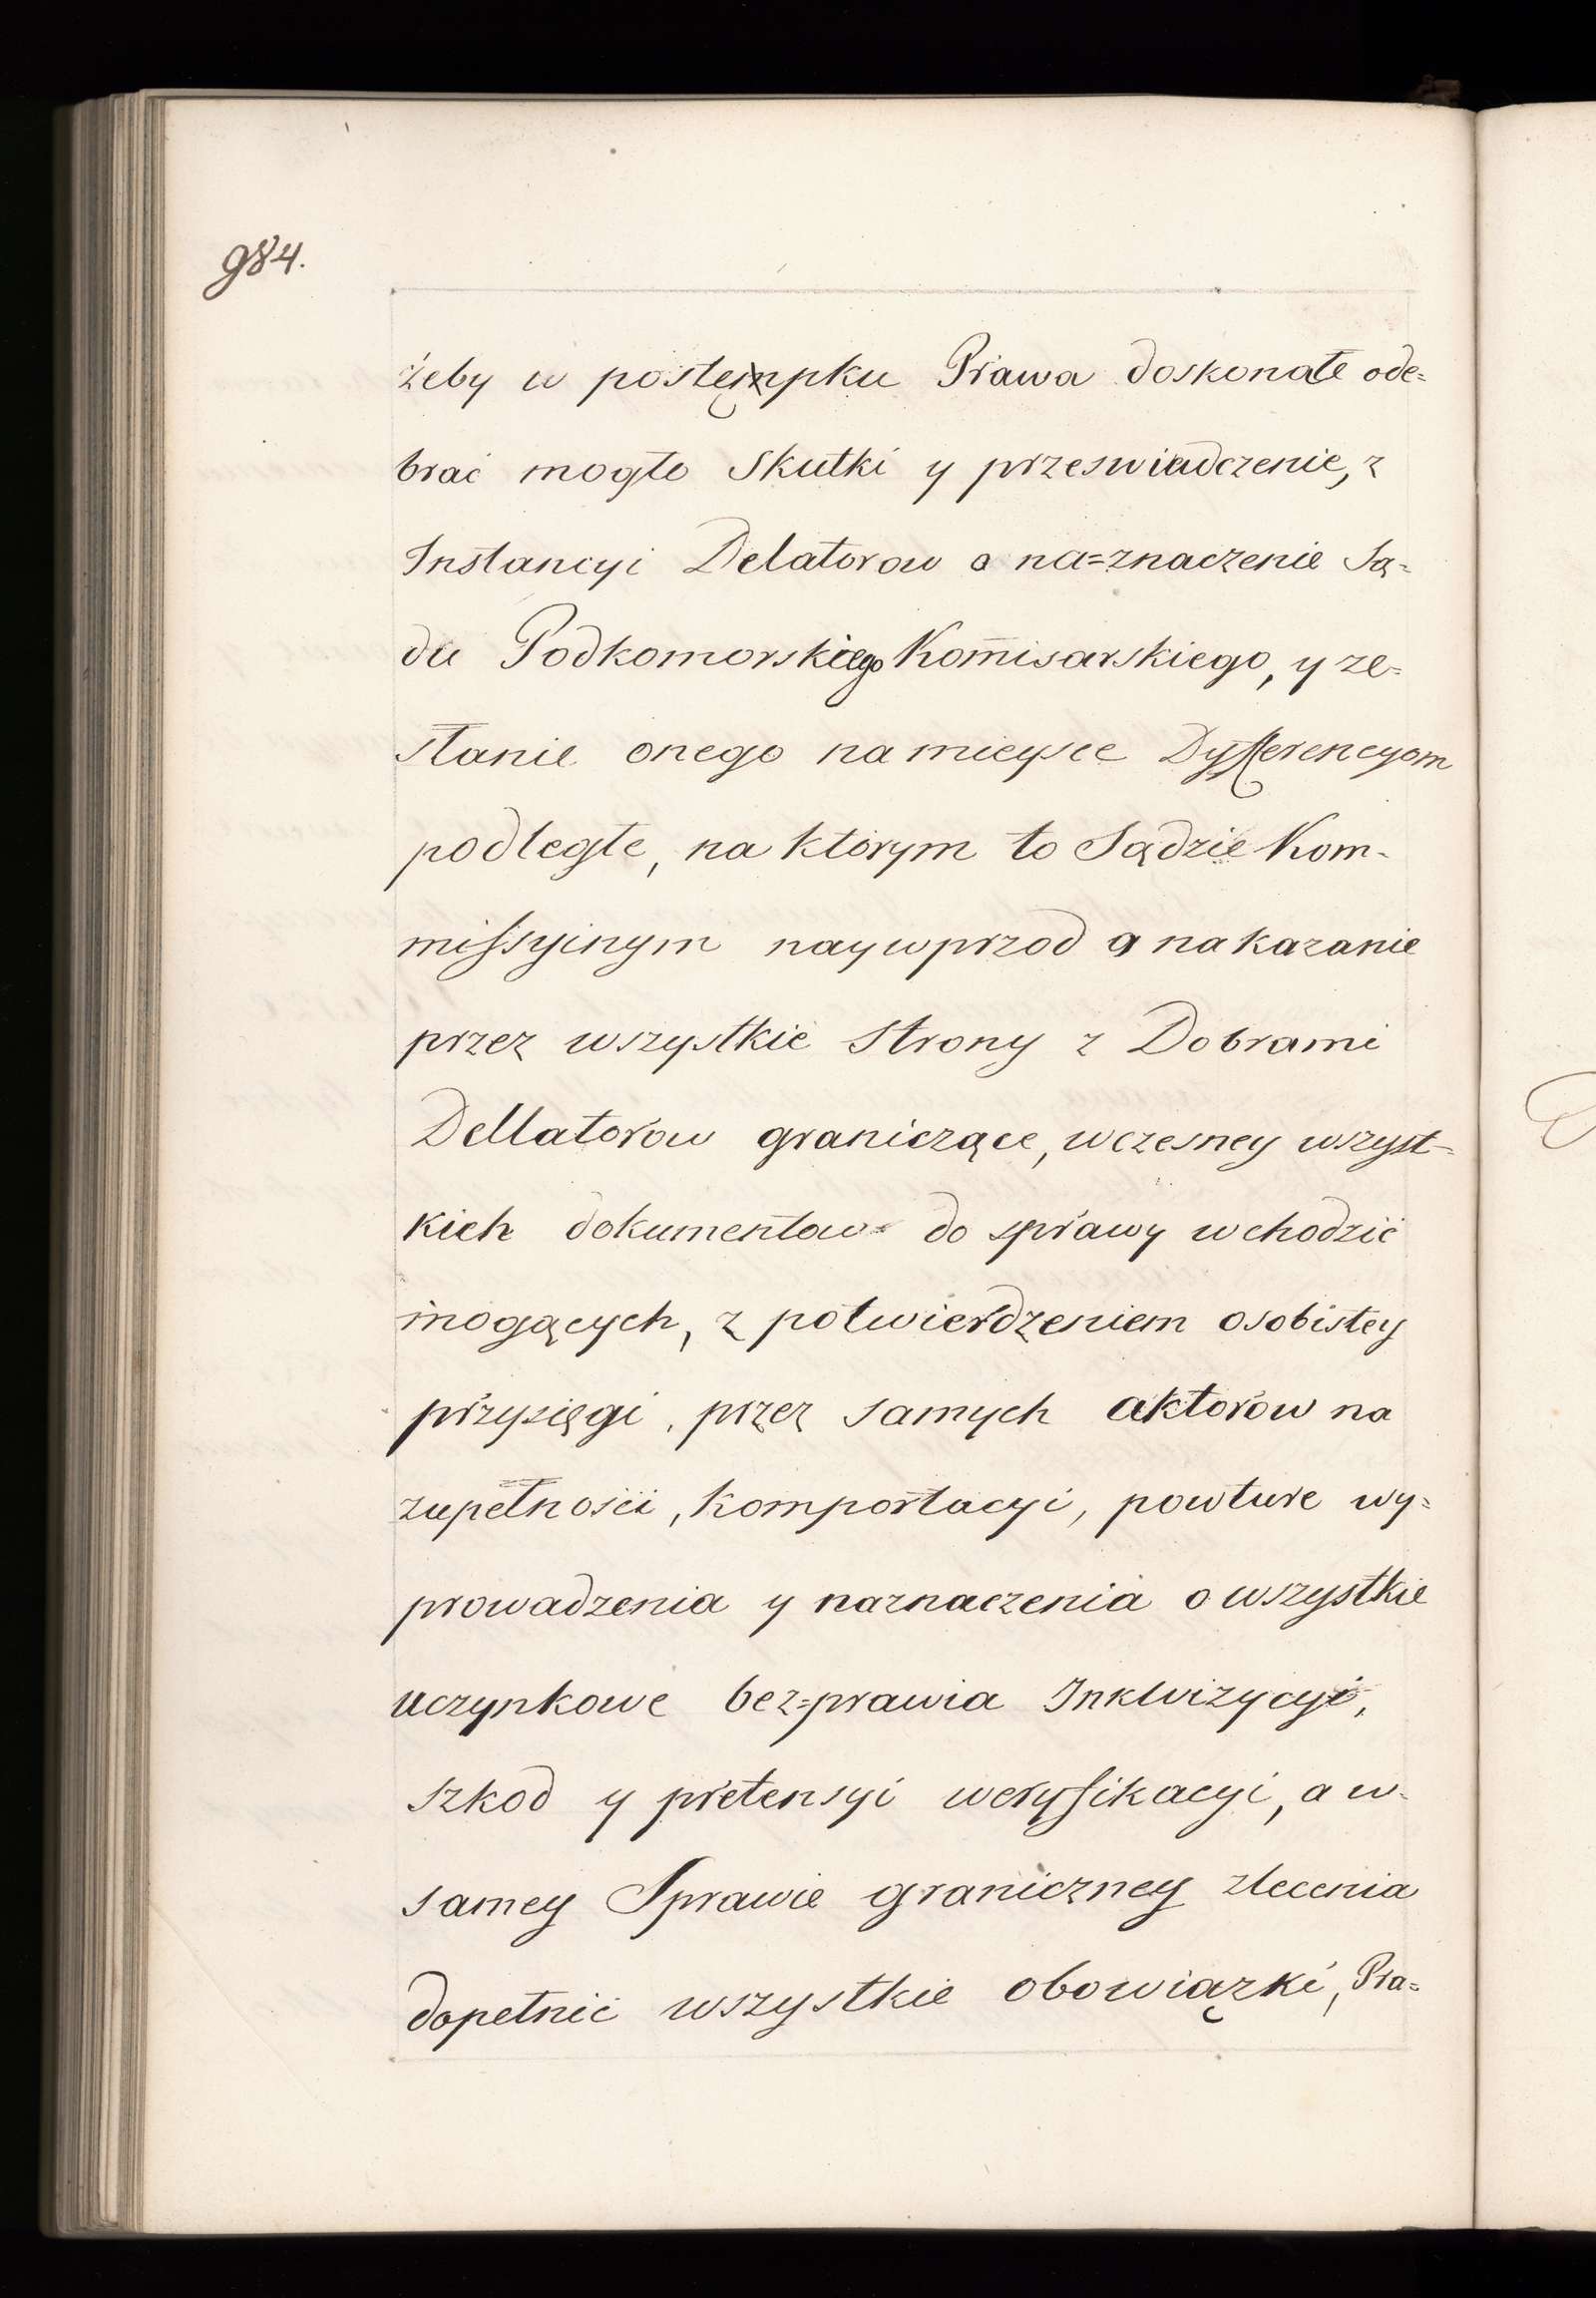 984.
żeby w postęmpku Prawa doskonałe ode=
brać mogło Skutki y przeswiadczenie, z
Instancyi Delatorow o na=znaczenie Są=
du Podkomorskiego Kom̄isarskiego, y ze=
słanie onego na mieysce Dyfferencyom
podległe, na ktorym to Sądzie Kom-
missyinym naywprzod o nakazanie
przez wszystkie Strony z Dobrami
Dellatorow graniczące, wczesney wszyst=
kich dokumentow do sprawy wchodzić
mogących, z potwierdzeniem osobistey
przysięgi, przez samych aktorów na
zupełności, komportacyi, powture wy=
prowadzenia y naznaczenia o wszystkie
uczynkowe bez=prawia Inkwizycyi,
szkod y pretensyi weryfikacyi, a w-
samey Sprawie graniczney zlecenia
dopełnić wszystkie obowiązki, Pra=